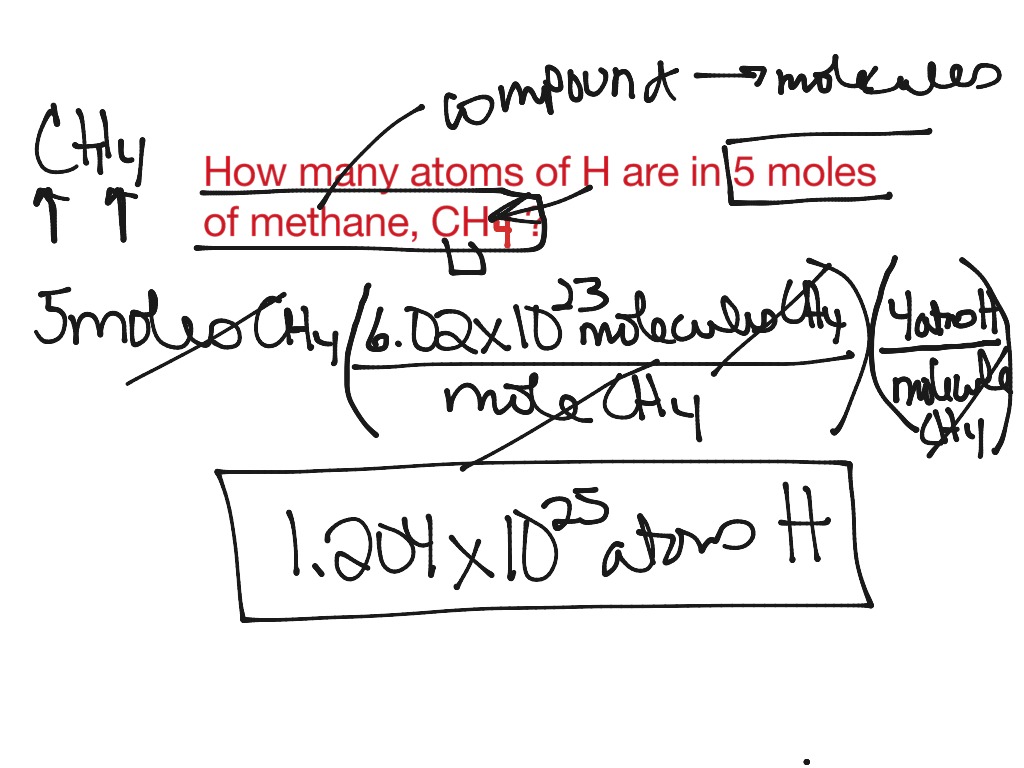 compound → molecules
CH4
How many atoms of H are in 5 moles
of methane, CH4 ?
5 moles CH4 (6.02 x 10^23 molecules CH4 / mole CH4) (4 atoms H / molecule CH4)
1.204 x 10^25 atoms H